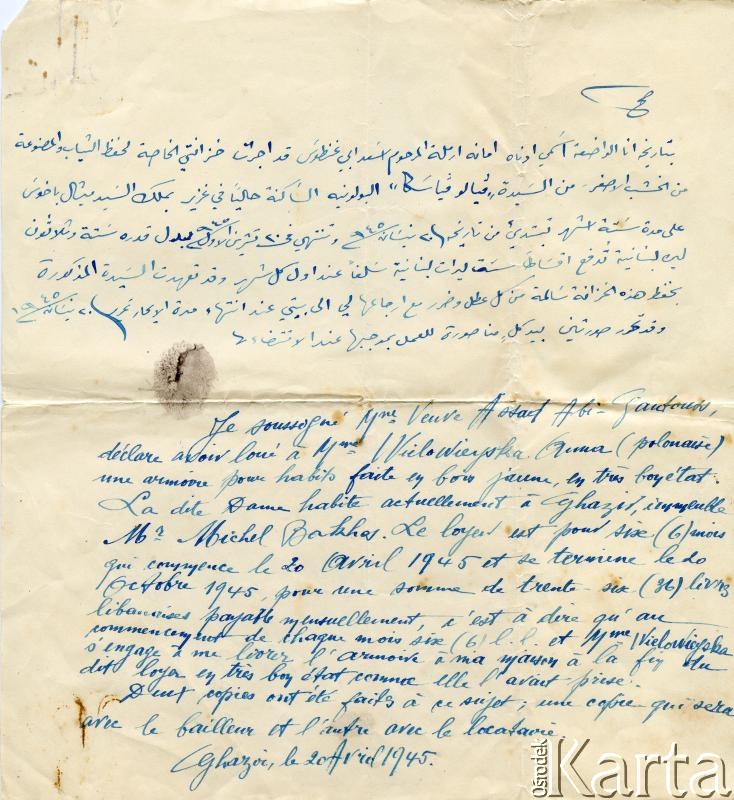 بتاريخه انا الواضعة اسمي ادناه امانه ارملة المرحوم اسعد ابي غنطوس قد اجرت خزانتي الخاصة لحفظ الثياب والمصنوعة
من الخشب الاصفر من السيدة البولونيه الساكنة حالياً في غزير بملك السيد ميشال باخوس
على مدة ستة اشهر تبتدئ من تاريخه ٢٠ نيسان ١٩٤٥ وتنتهي في ٢٠ تشرين الاول ١٩٤٥ ببدل قدره ستة وثلاثون
ليره لبنانية تُدفع اقساطاً ست ليرات لبنانية سلفاً عند اول كل شهر وقد تعهدت السيدة المذكورة
بحفظ هذه الخزانة سالمة من كل عطل وضرر مع ارجاعها لي الى بيتي عند انتهاء مدة الايجار تحرر في ٢٠ نيسان ١٩٤٥
وقد تحرر صورتين بيد كل منا صورة للعمل بموجبها عند الاقتضاء
Je soussigné Mme Veuve Assad Abi-Gantous,
déclare avoir loué à Mme Wielowieyska Anna (polonaise)
une armoire pour habits faite en bois jaune, en très bon état.
La dite Dame habite actuellement à Ghazir, immeuble
Mr Michel Bakhos. Le loyer est pour six (6) mois
qui commence le 20 Avril 1945 et se termine le 20
Octobre 1945, pour une somme de trente-six (36) livres
libanaises payable mensuellement, c'est à dire qu'au
commencement de chaque mois six (6) l.l. et Mme Wielowieyska
s'engage à me livrer l'armoire à ma maison à la fin du
dit loyer en très bon état comme elle l'avait prise.
Deux copies ont été faits à ce sujet; une copie qui sera
avec le bailleur et l'autre avec le locataire
Ghazir, le 20 Avril 1945.
Ośrodek
Karta